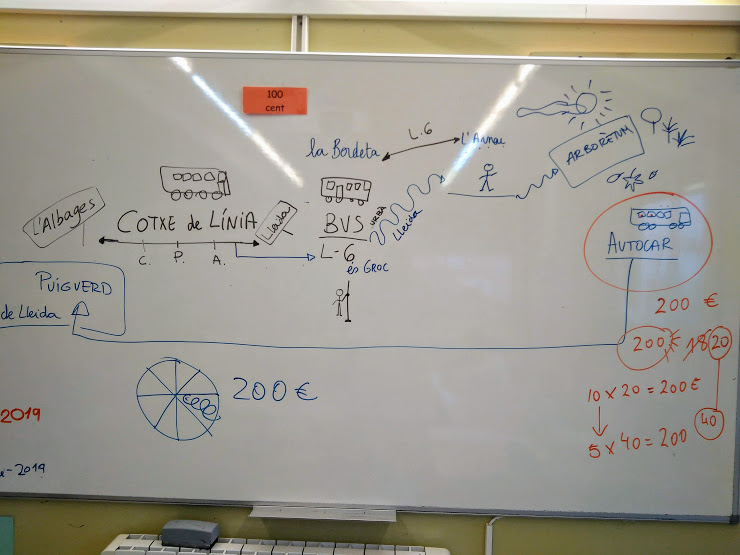 100
cent
L.6
la Bordeta
L'Albages
COTXE de LÍNIA
Lleida
C. P. A.
BUS
URBÀ
Lleida
L-6
és GROC
ARBORETUM
AUTOCAR
PUIGVERD
de Lleida
200 €
200 € 18 20
10 x 20 = 200 €
40
5 x 40 = 200
200 €
2019
-2019